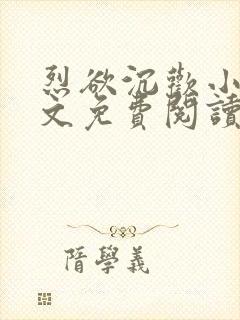 烈欲沉歡小
文免費閱讀
隋學義